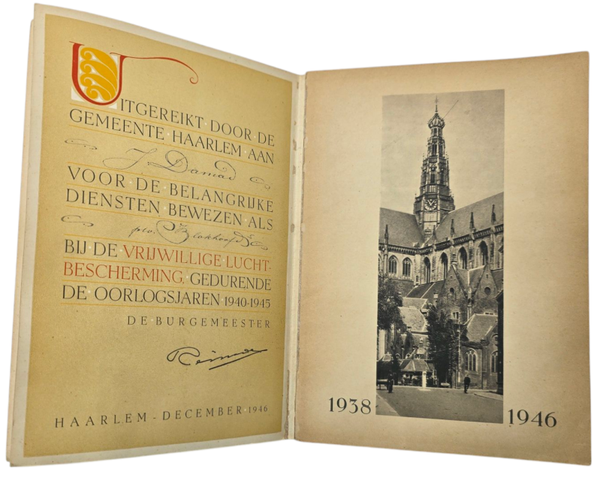 UITGEREIKT·DOOR·DE
GEMEENTE·HAARLEM·AAN
J. Damad
VOOR·DE·BELANGRIJKE
DIENSTEN·BEWEZEN·ALS
BIJ·DE·VRIJWILLIGE·LUCHT-
BESCHERMING, GEDURENDE
DE·OORLOGSJAREN·1940-1945
DE·BURGEMEESTER
HAARLEM - DECEMBER · 1946
1938
1946